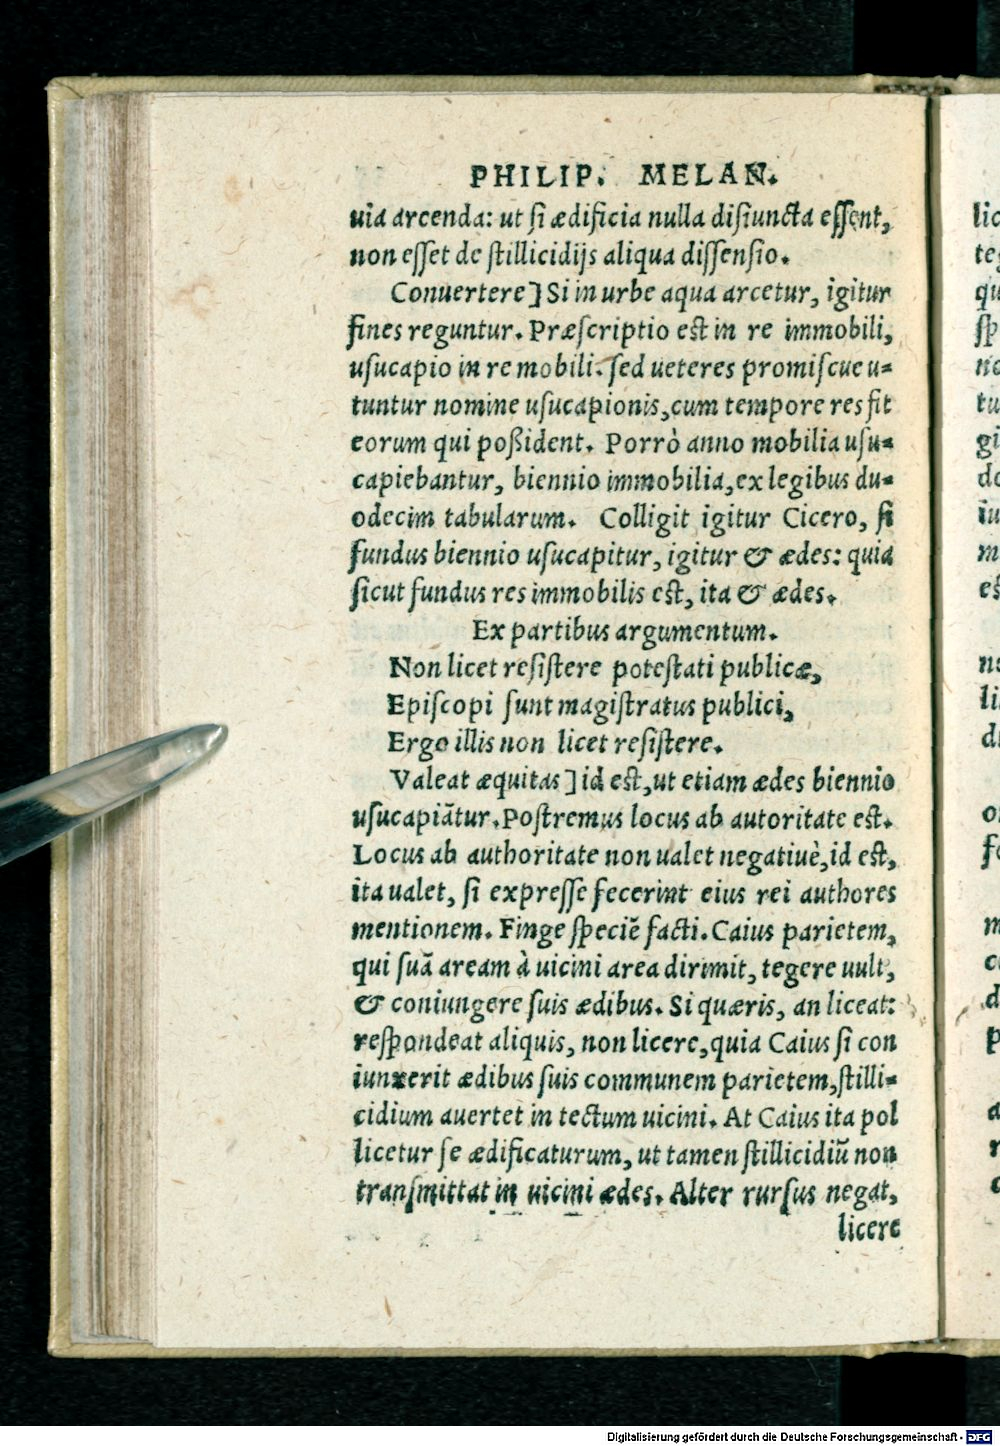 PHILIP. MELAN.
uia arcenda: ut ſi ædificia nulla diſiuncta eſſent,
non eſſet de ſtillicidijs aliqua diſſenſio.
Conuertere] Si in urbe aqua arcetur, igitur
fines reguntur. Præſcriptio est in re immobili,
uſucapio in re mobili. ſed ueteres promiſcue u-
tuntur nomine uſucapionis, cum tempore res fit
eorum qui poßident. Porrò anno mobilia uſu-
capiebantur, biennio immobilia, ex legibus du-
odecim tabularum. Colligit igitur Cicero, ſi
fundus biennio uſucapitur, igitur & ædes: quia
ſicut fundus res immobilis est, ita & ædes.
Ex partibus argumentum.
Non licet reſiſtere poteſtati publicæ,
Epiſcopi ſunt magiſtratus publici,
Ergo illis non licet reſiſtere.
Valeat æquitas] id est, ut etiam ædes biennio
uſucapiãtur. Poſtremus locus ab autoritate est.
Locus ab authoritate non ualet negatiuè, id est,
ita ualet, ſi expreſſe fecerint eius rei authores
mentionem. Finge ſpeciẽ facti. Caius parietem,
qui ſuã aream à uicini area dirimit, tegere uult,
& coniungere ſuis ædibus. Si quæris, an liceat:
reſpondeat aliquis, non licere, quia Caius ſi con
iunxerit ædibus ſuis communem parietem, ſtilli-
cidium auertet in tectum uicini. At Caius ita pol
licetur ſe ædificaturum, ut tamen ſtillicidiũ non
tranſmittat in uicini ædes. Alter rurſus negat,
licere
Digitalisierung gefördert durch die Deutsche Forschungsgemeinschaft - DFG